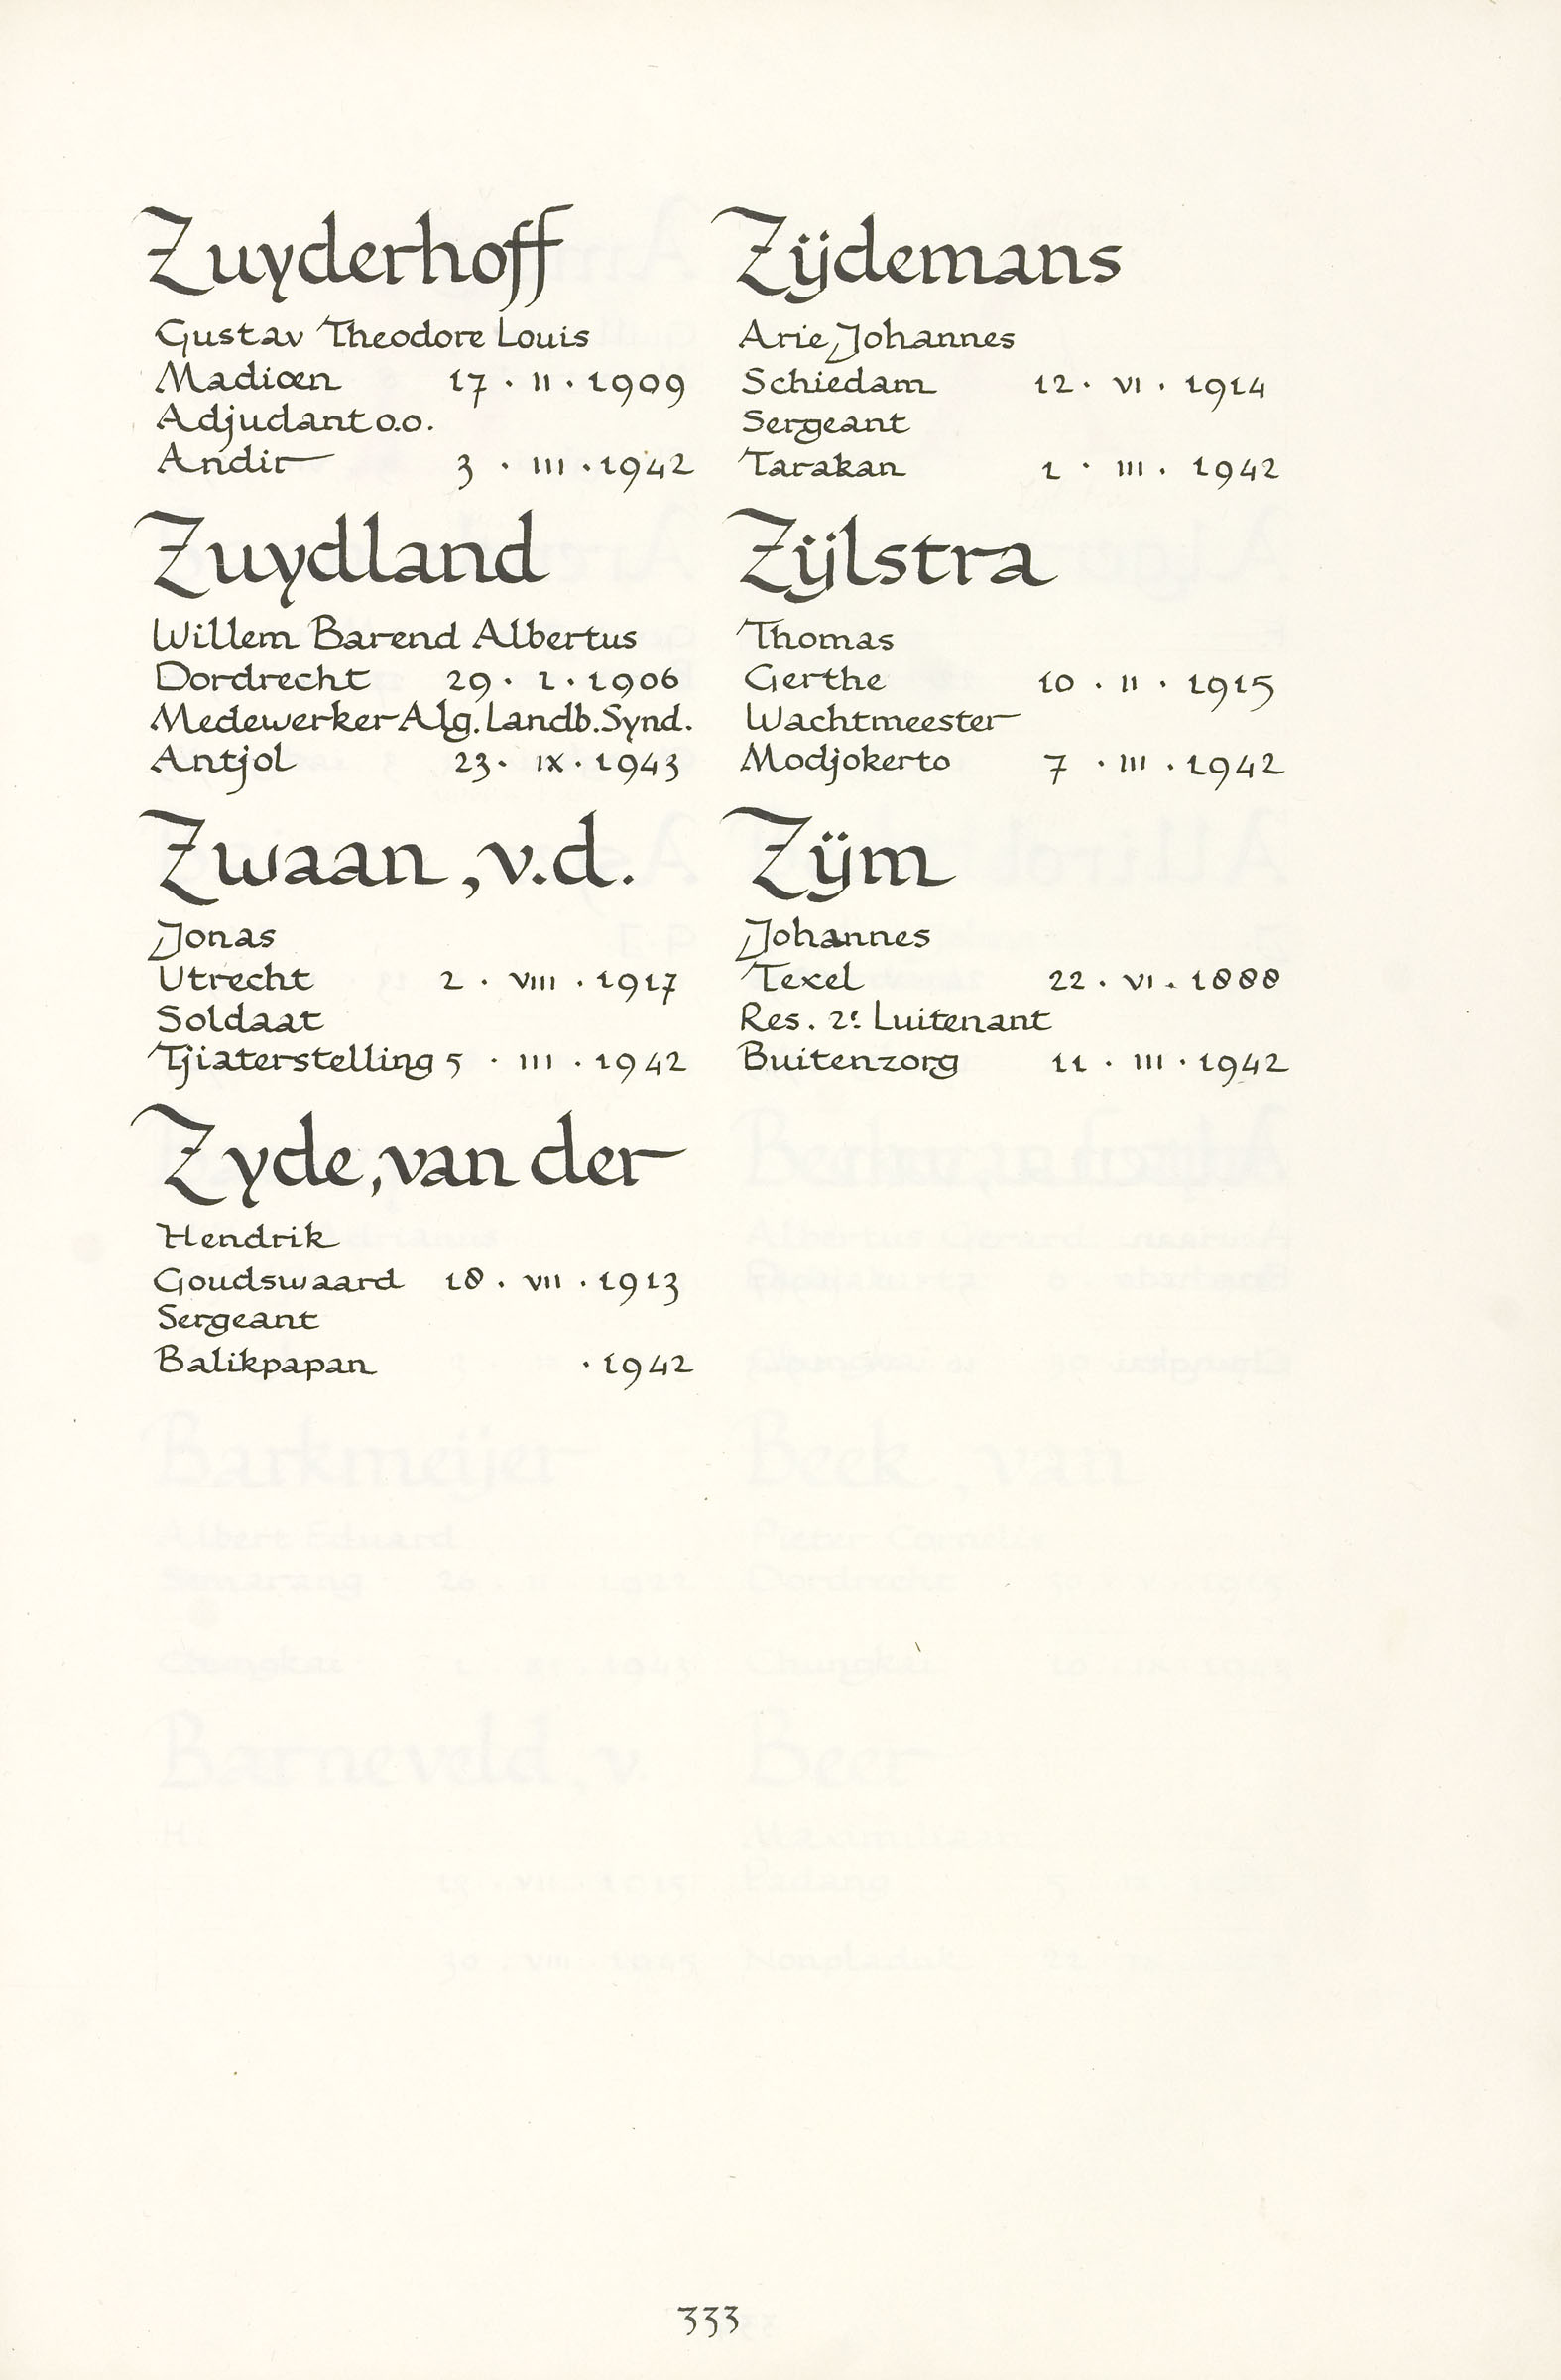 Zuyderhoff
Gustav Theodore Louis
Madioen 17 . II . 1909
Adjudant o.o.
Andir 3 . III . 1942
Zuydland
Willem Barend Albertus
Dordrecht 29 . I . 1906
Medewerker Alg. Landb. Synd.
Antjol 23 . IX . 1943
Zwaan, v.d.
Jonas
Utrecht 2 . VIII . 1917
Soldaat
Tjiaterstelling 5 . III . 1942
Zyde, van der
Hendrik
Goudswaard 18 . VII . 1913
Sergeant
Balikpapan . 1942
Zijdemans
Arie Johannes
Schiedam 12 . VI . 1914
Sergeant
Tarakan 1 . III . 1942
Zijlstra
Thomas
Gerthe 10 . II . 1915
Wachtmeester
Modjokerto 7 . III . 1942
Zijm
Johannes
Texel 22 . VI . 1888
Res. 2e Luitenant
Buitenzorg 11 . III . 1942
333